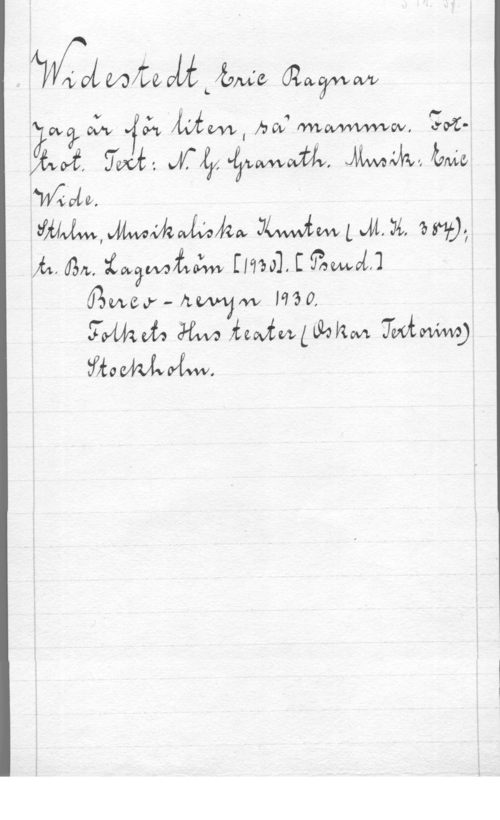 Widestedt, Eric Ragnar
Jag är för liten, sa' mamma. Fox-
trot. Text: N. G. Granath. Musik: Eric
Wide.
Sthlm, Musikaliska Knuten (M. K. 384);
tr. Br. Lagerström [1930]. [Pseud.]
Berco-revyn 1930.
Folkets Hus teater (Oskar Textorius)
Stockholm.